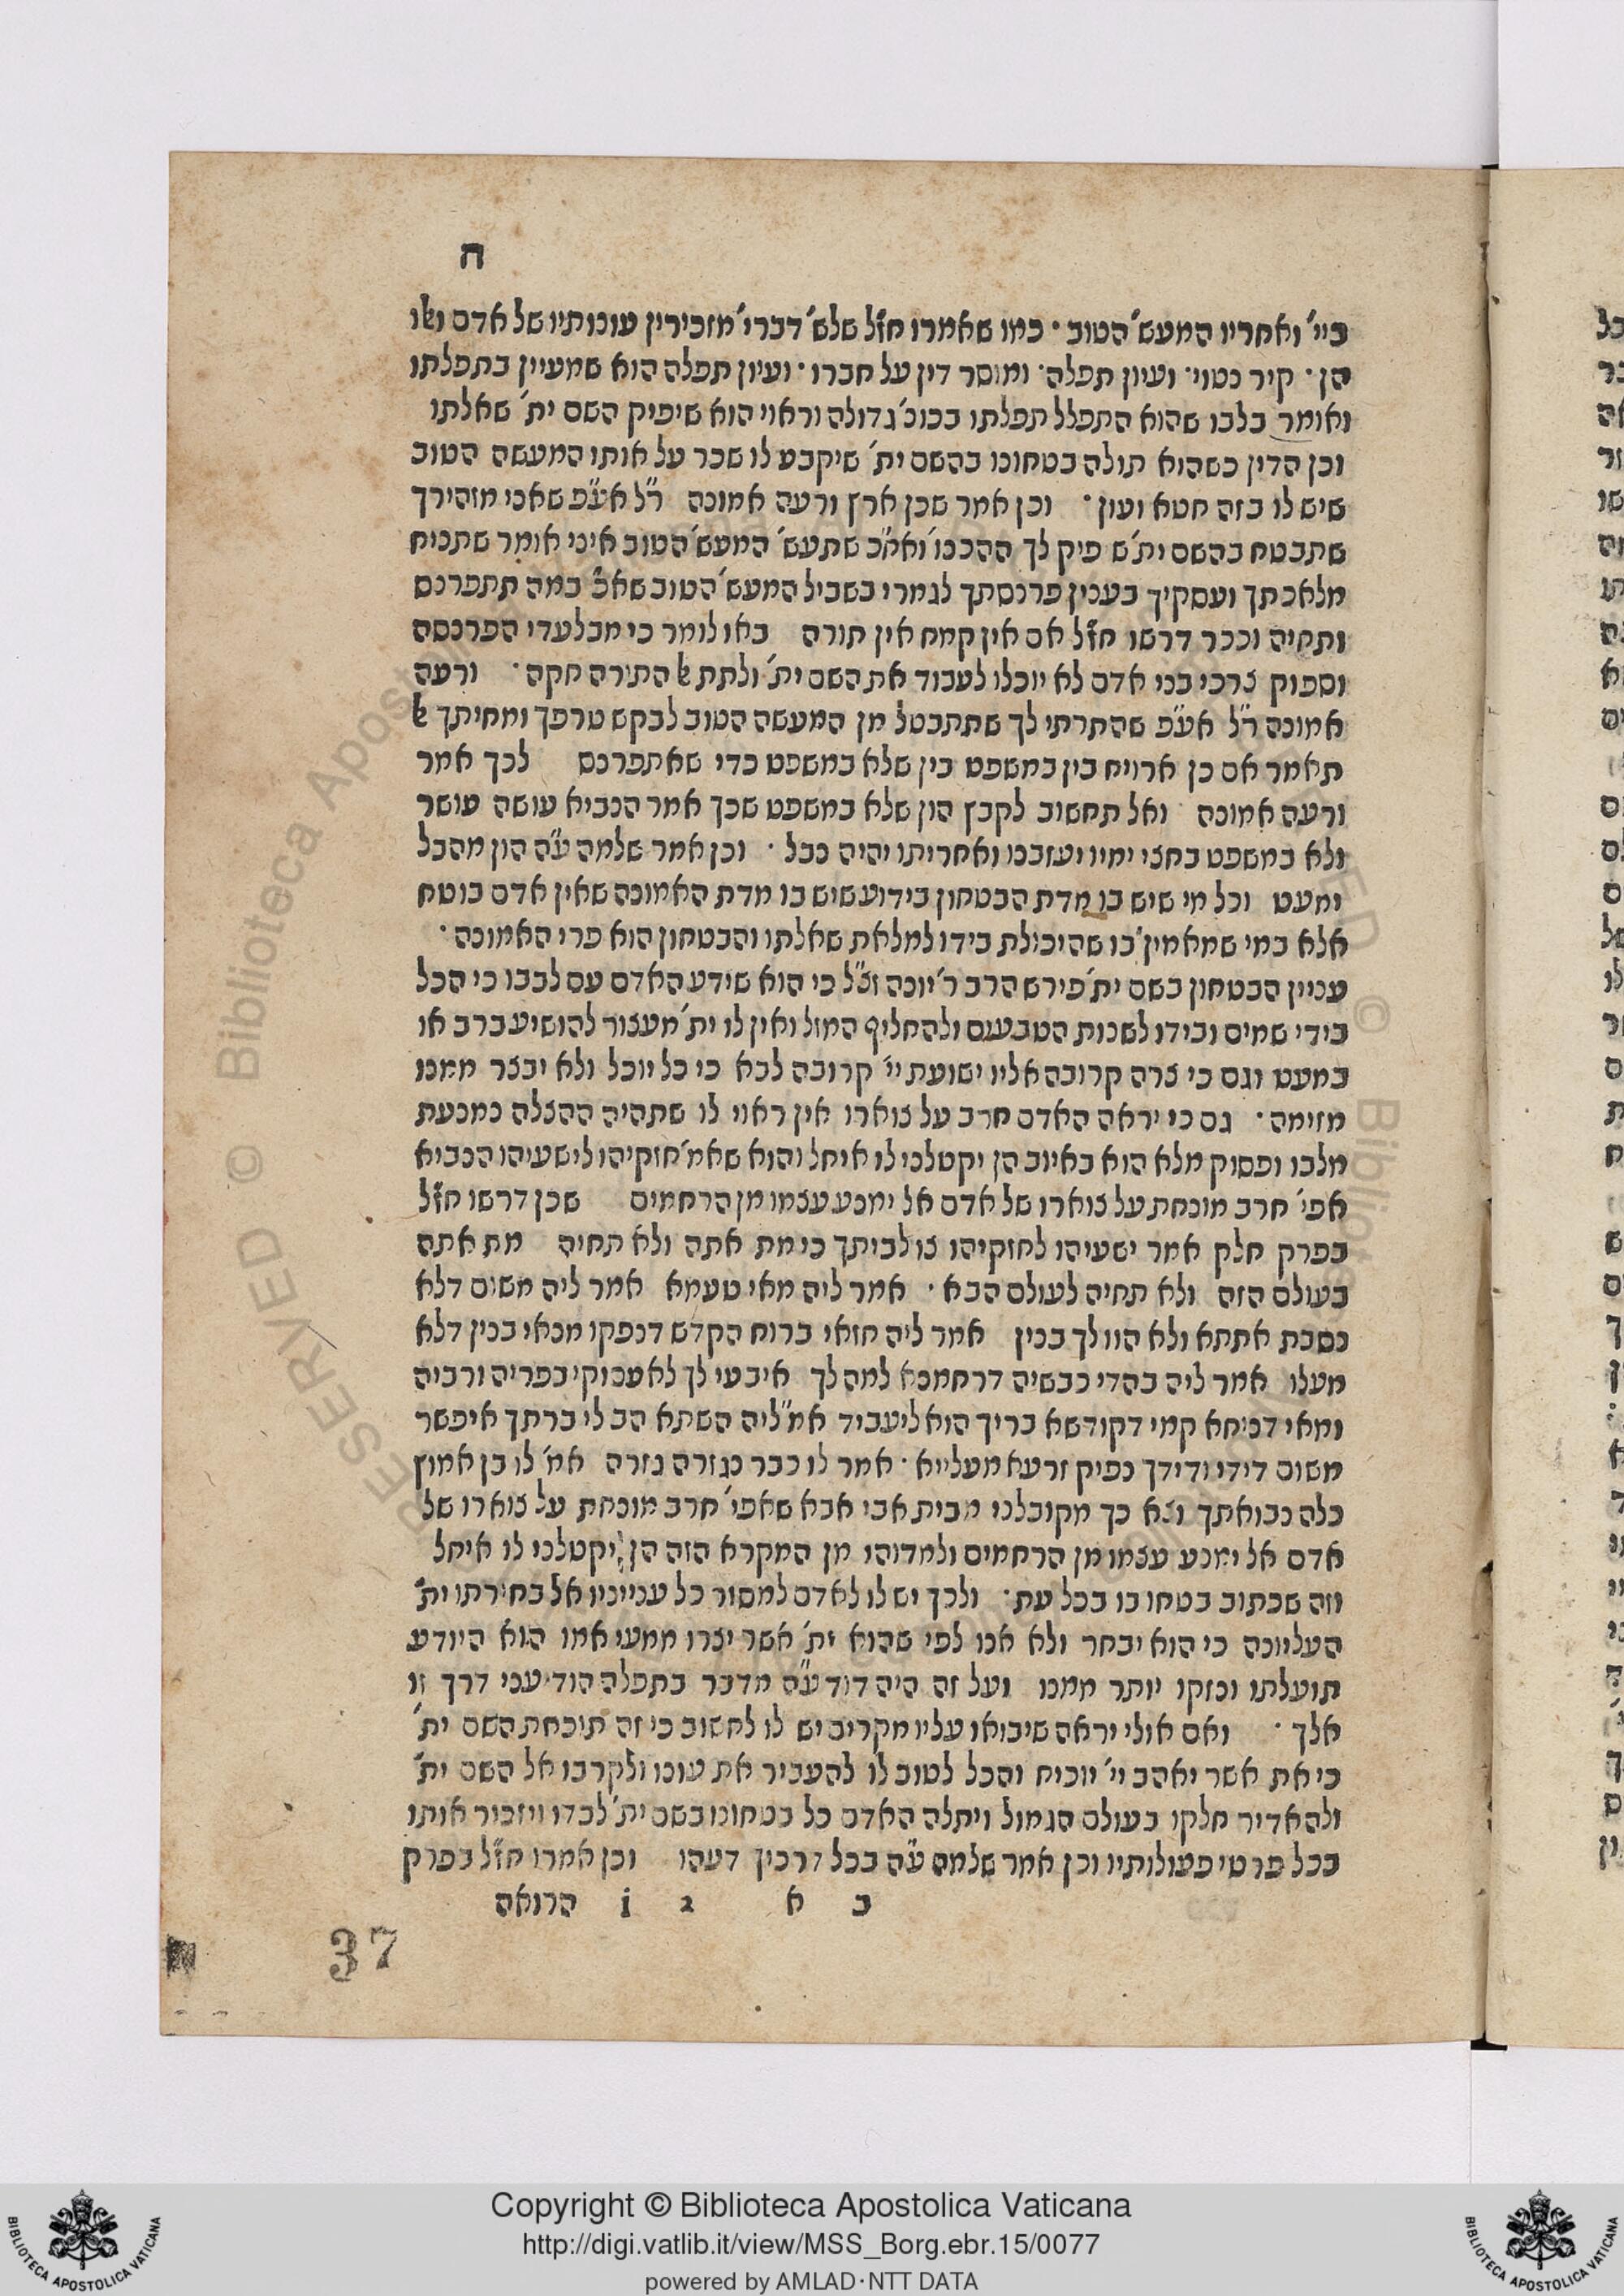 ח
ביי׳ ואחריו המעש׳ הטוב · כמו שאמרו חז״ל שלש׳ דברי׳ מזכירין עונותיו של אדם ואלו
הן · קיר נטוי · ועיון תפלה · ומוסר דין על חברו · ועיון תפלה הוא שמעיין בתפלתו
ואומר בלבו שהוא התפלל תפלתו בכונ׳ גדולה וראוי הוא שיפיק השם ית׳ שאלתו
וכן הדין כשהוא תולה בטחונו בהשם ית׳ שיקבע לו שכר על אותו המעשה הטוב
שיש לו בזה חטא ועון · וכן אמר שכן ארץ ורעה אמונה ר״ל אע״פ שאני מזהירך
שתבטח בהשם ית׳ ש פיק לך ההכנו׳ ואח״כ שתעש׳ המעש׳ הטוב איני אומר שתניח
מלאכתך ועסקיך בענין פרנסתך לגמרי בשביל המעש׳ הטוב שא״כ במה תתפרנס
ותחיה וכבר דרשו חז״ל אם אין קמח אין תורה באו לומר כי מבלעדי הפרנסה
וספוק צרכי בני אדם לא יוכלו לעבוד את השם ית׳ ולתת אל התורה חקה · ורעה
אמונה ר״ל אע״פ שהתרתי לך שתתבטל מן המעשה הטוב לבקש טרפך ומחיתך אל
תאמר אם כן ארויח בין במשפט בין שלא במשפט כדי שאתפרנס לכך אמר
ורעה אמונה ואל תחשוב לקבץ הון שלא במשפט שכך אמר הנביא עושה עושר
ולא במשפט בחצי ימיו יעזבנו ואחריתו יהיה נבל · וכן אמר שלמה ע״ה הון מהבל
ימעט וכל מי שיש בו מדת הבטחון בידוע שיש בו מדת האמונה שאין אדם בוטח
אלא במי שמאמין בו שהיכולת בידו למלאת שאלתו והבטחון הוא פרי האמונה ·
עניין הבטחון בשם ית׳ פירש הרב ר׳ יונה זצ״ל כי הוא שידע האדם עם לבבו כי הכל
בידי שמים ובידו לשנות הטבעים ולהחליף המזל ואין לו ית׳ מעצור להושיע ברב או
במעט וגם כי צרה קרובה אליו ישועת יי׳ קרובה לבא כי כל יוכל ולא יבצר ממנו
מזימה · גם כי יראה האדם חרב על צוארו אין ראוי לו שתהיה ההצלה נמנעת
מלבו ופסוק מלא הוא באיוב הן יקטלני לו איחל והוא שאמ׳ חזקיהו לישעיהו הנביא
אפי׳ חרב מונחת על צוארו של אדם אל ימנע עצמו מן הרחמים שכן דרשו חז״ל
בפרק חלק אמר ישעיהו לחזקיהו צו לביתך כי מת אתה ולא תחיה מת אתה
בעולם הזה ולא תחיה לעולם הבא · אמר ליה מאי טעמא אמר ליה משום דלא
נסבת אתתא ולא הוו לך בנין אמר ליה חזאי ברוח הקדש דנפקו מנאי בנין דלא
מעלו אמר ליה בהדי כבשיה דרחמנא למה לך איבעי לך לאעסוקי בפריה ורביה
ומאי דניחא קמי דקודשא בריך הוא ליעביד אמ״ ליה השתא הב לי ברתך איפשר
משום דידי ודידך נפיק זרעא מעלייא · אמר לו כבר נגזרה גזרה אמ׳ לו בן אמוץ
כלה נבואתך וצא כך מקובלני מבית אבי אבא שאפי׳ חרב מונחת על צוארו של
אדם אל ימנע עצמו מן הרחמים ולמדוהו מן המקרא הזה הן יקטלני לו איחל
וזה שכתוב בטחו בו בכל עת · ולכך יש לו לאדם למסור כל ענייניו אל בחירתו ית׳
העליונה כי הוא יבחר ולא אנו לפי שהוא ית׳ אשר יצרו ממעי אמו הוא היודע
תועלתו ונזקו יותר ממנו ועל זה היה דוד ע״ה מדבר בתפלה הודיעני דרך זו
אלך · ואם אולי יראה שיבואו עליו מקרים יש לו לחשוב כי זה תוכחת השם ית׳
כי את אשר יאהב יי׳ יוכיח והכל לטוב לו להעביר את עונו ולקרבו אל השם ית׳
ולהאדיר חלקו בעולם הגמול ויתלה האדם כל בטחונו בשם ית׳ לבדו ויזכור אותו
בכל פרטי פעולותיו וכן אמר שלמה ע״ה בכל דרכיך דעהו וכן אמרו חז״ל בפרק
ב א 2 i הרואה
37
RESERVED © Biblioteca Apostolica
Copyright © Biblioteca Apostolica Vaticana
http://digi.vatlib.it/view/MSS_Borg.ebr.15/0077
powered by AMLAD·NTT DATA
BIBLIOTECA APOSTOLICA VATICANA
BIBLIOTECA APOSTOLICA VATICANA